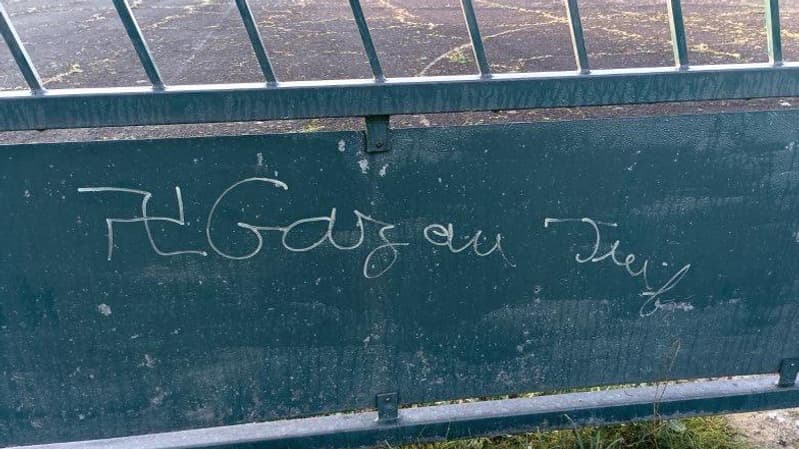 Gaz au Juif